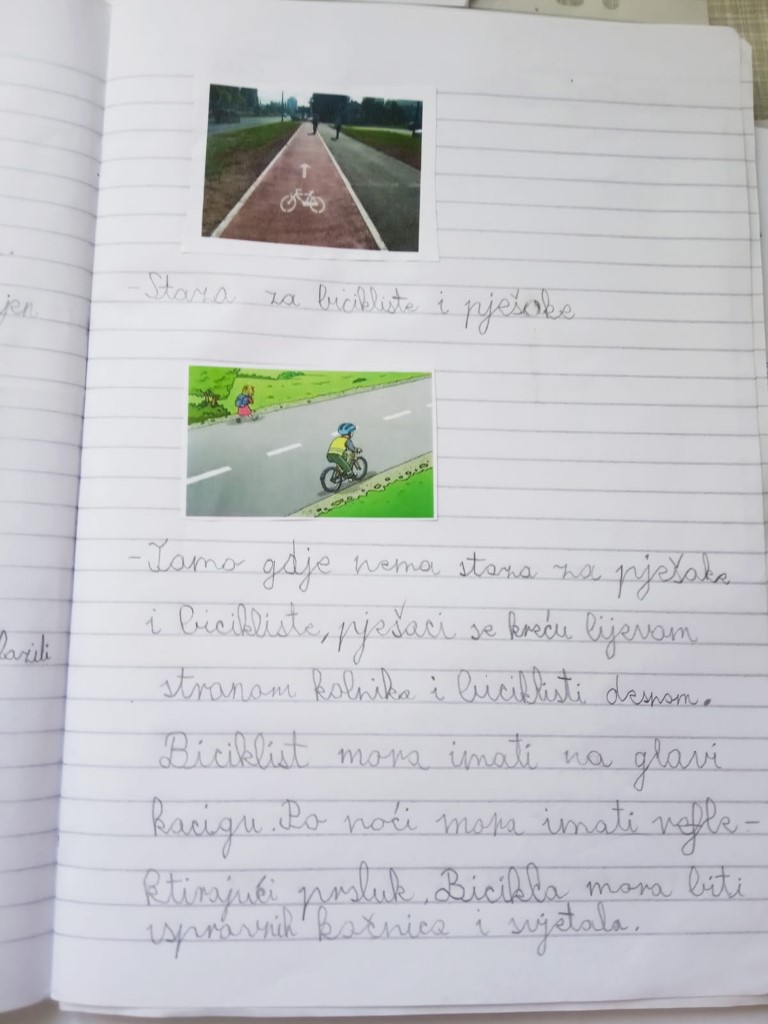 - Staza za bicikliste i pješake
jen
- Tamo gdje nema staza za pješake
i bicikliste, pješaci se kreću lijevom
lazili
stranom kolnika i biciklisti desnom.
Biciklist mora imati na glavi
kacigu. Po noći mora imati refle-
ktirajući prsluk. Bicikla mora biti
ispravnih kočnica i svjetala.